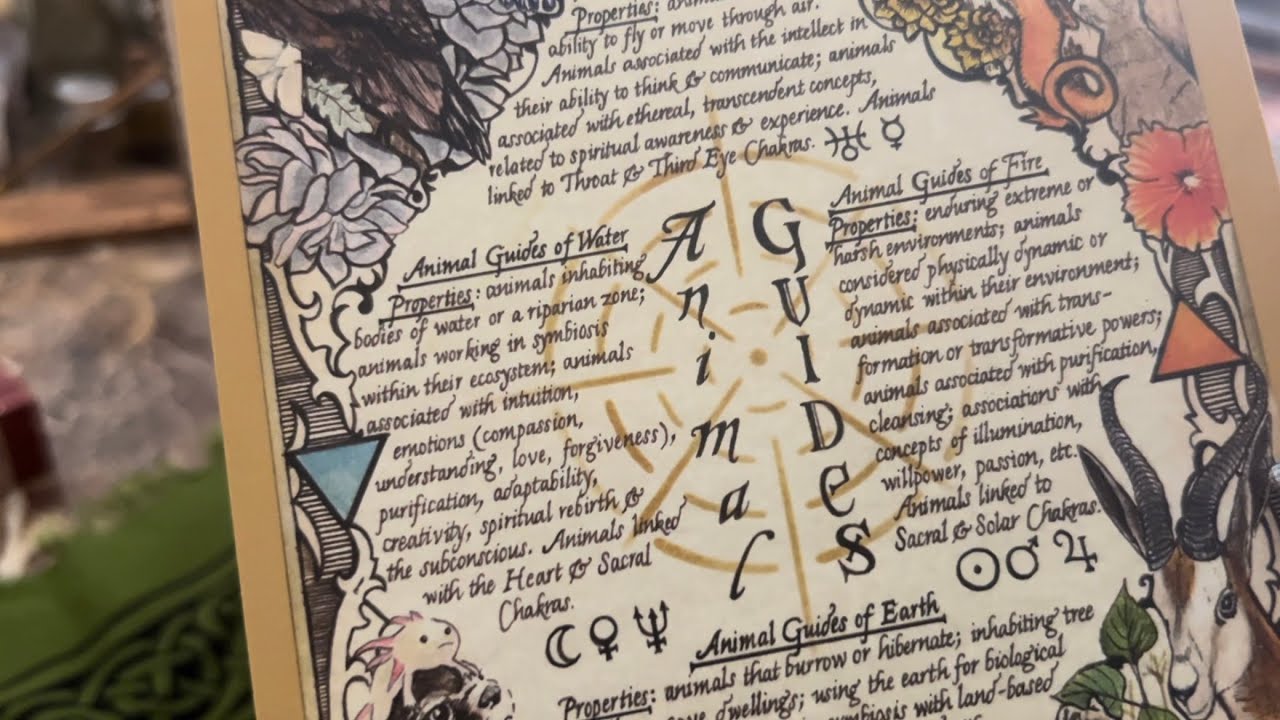 Properties:
ability to fly or move through air.
Animals associated with the intellect in
their ability to think & communicate; animals
associated with ethereal, transcendent concepts,
related to spiritual awareness & experience. Animals
linked to Throat & Third Eye Chakras. ♅ ☿
Animal Guides of Water
Properties: animals inhabiting
bodies of water or a riparian zone;
animals working in symbiosis
within their ecosystem; animals
associated with intuition,
emotions (compassion,
understanding, love, forgiveness),
purification, adaptability,
creativity, spiritual rebirth &
the subconscious. Animals linked
with the Heart & Sacral
Chakras.
☾ ♀ ♆
Animal
GUIDeS
Animal Guides of Fire
Properties: enduring extreme or
harsh environments; animals
considered physically dynamic or
dynamic within their environment;
animals associated with trans-
formation or transformative powers;
animals associated with purification,
cleansing; associations with
concepts of illumination,
willpower, passion, etc.
Animals linked to
Sacral & Solar Chakras.
☉ ♂ ♃
Animal Guides of Earth
Properties: animals that burrow or hibernate; inhabiting tree
dwellings; using the earth for biological
with land-based